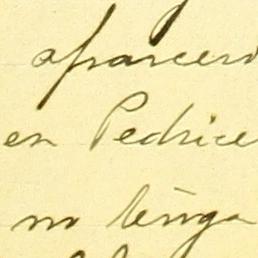 aparcero
en Pedrice
no tenga